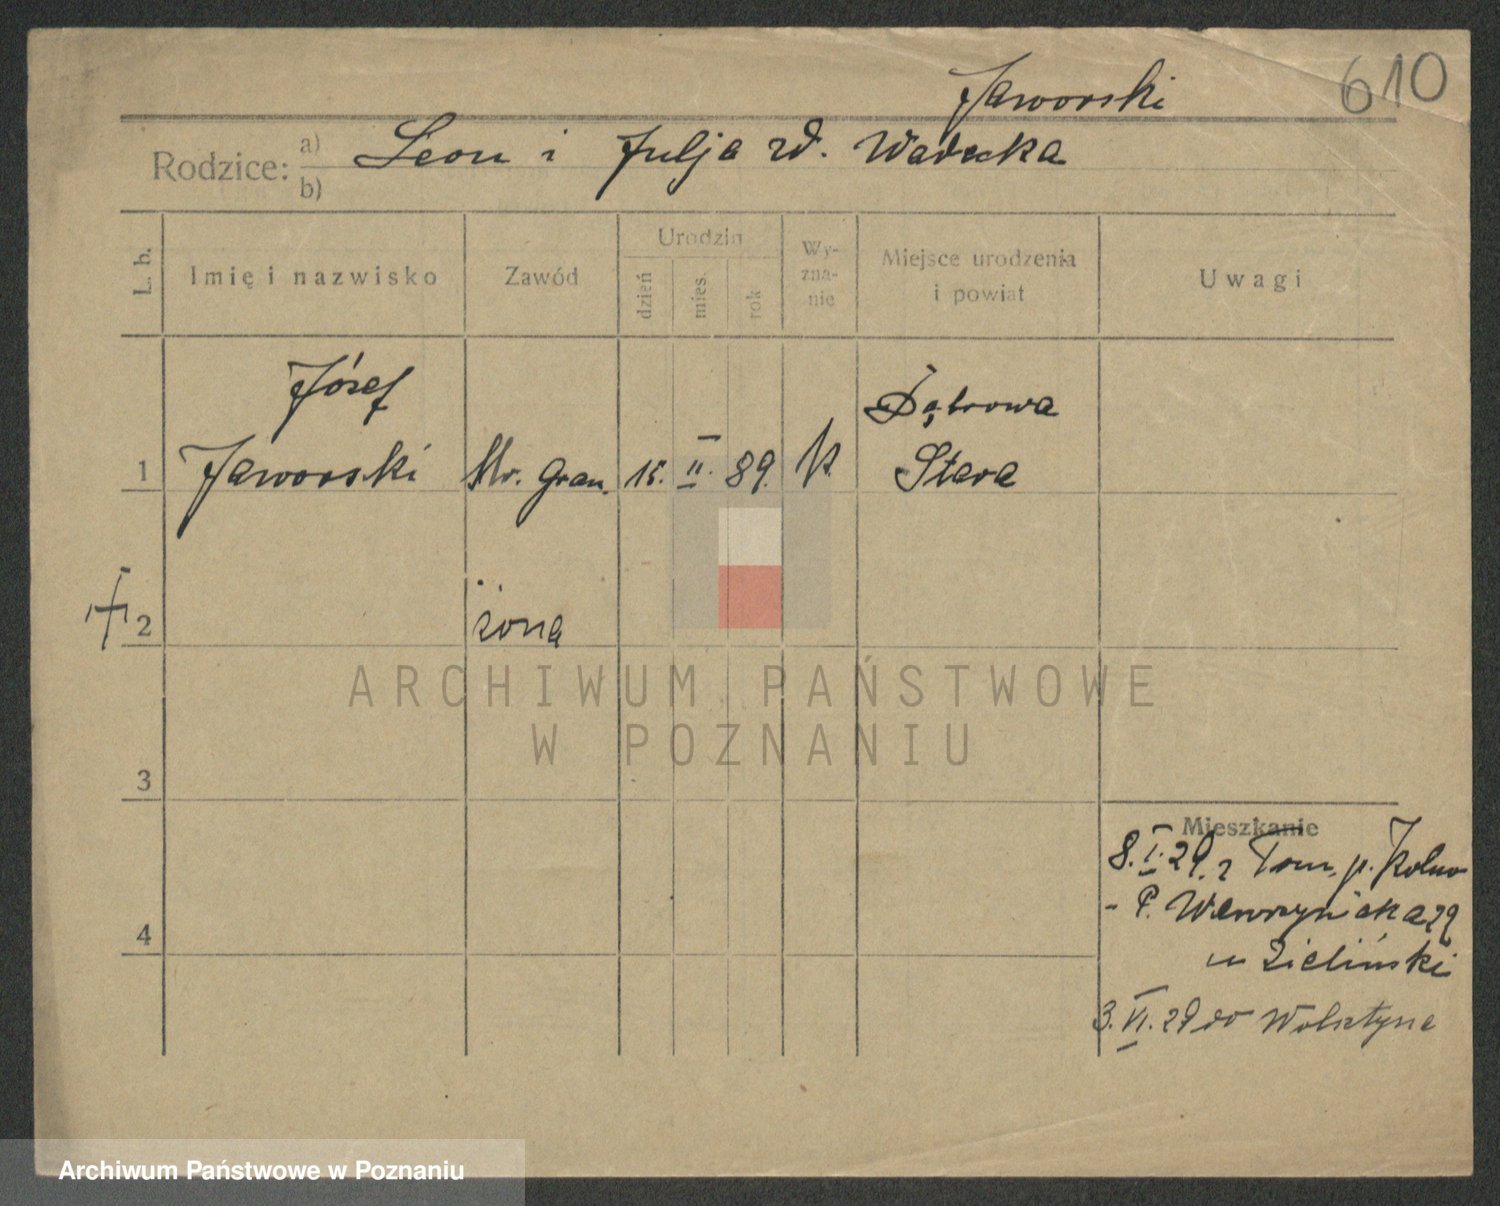 610
Jaworski
Rodzice: a) Leon i Julja zd. Wadecka
b)
L. b.
Imię i nazwisko
Zawód
Urodzin
dzień
mies.
rok
Wy-
zna-
nie
Miejsce urodzenia
i powiat
Uwagi
Józef
Dąbrowa
1 Jaworski Str. Gran. 15. II. 89. K. Stara
2 żona
3
4
Mieszkanie
8.I.29. z Tom. p. Kolno
- P. Wawrzyniaka 29
u Zieliński
3.VI.29 do Wolsztyna
ARCHIWUM PAŃSTWOWE
W POZNANIU
Archiwum Państwowe w Poznaniu